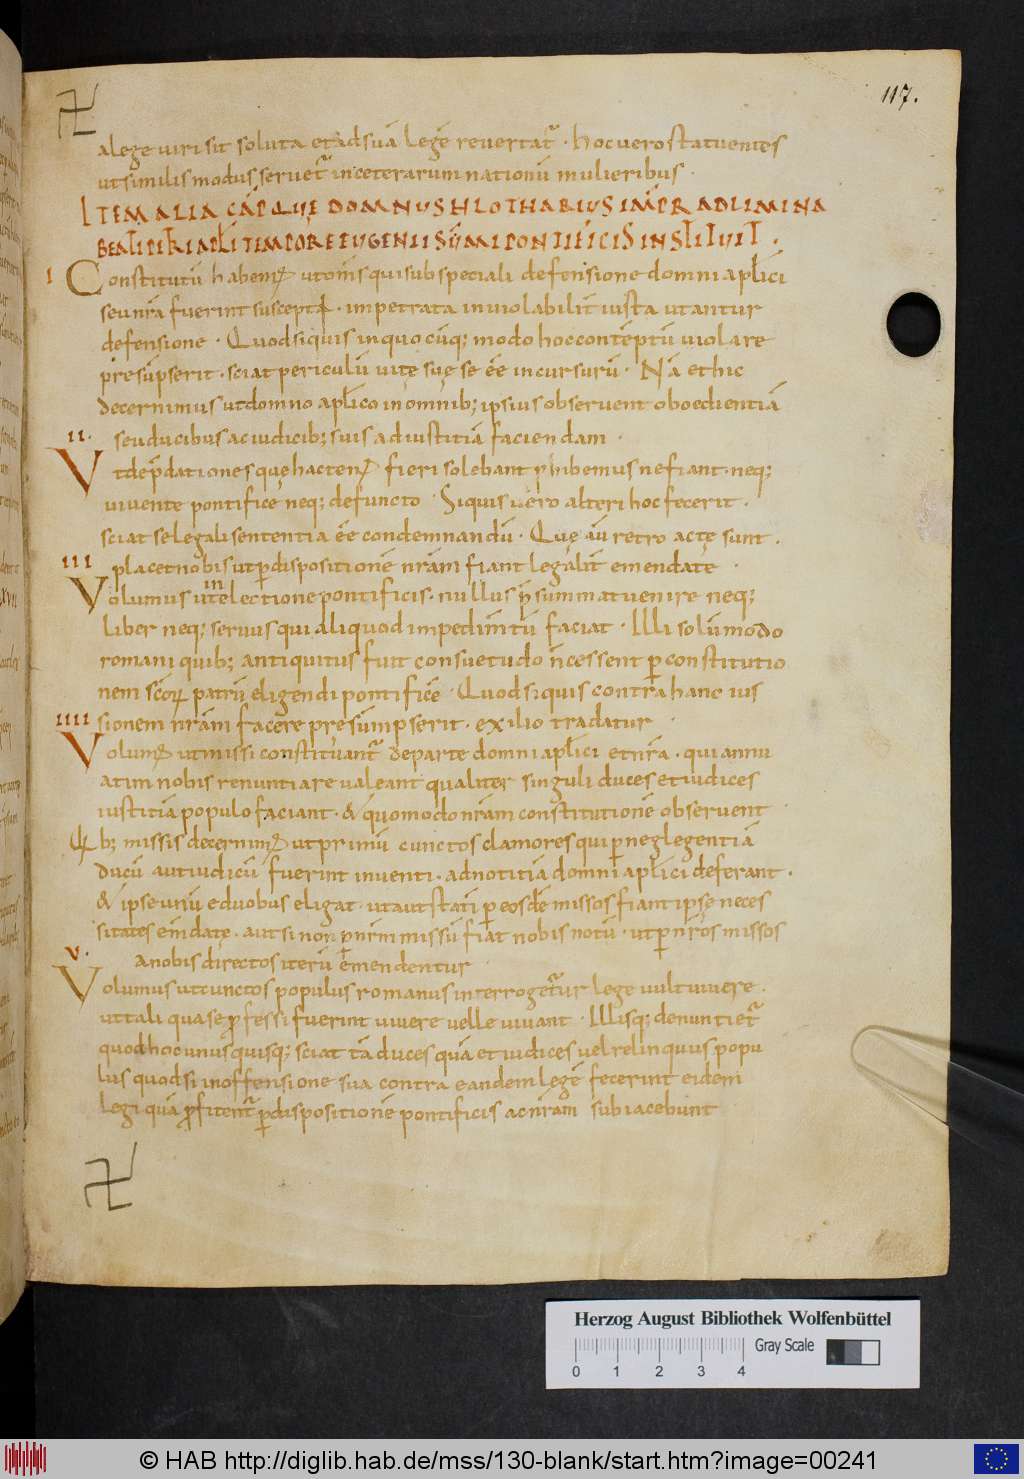 117.
alege viri sit soluta et adsuā legē revertat᷑. hoc vero statuentes
ut similis modus servet᷑ inceterarum nationū mulieribus.
ITEM ALIA CAP QUE DOMNUS HLOTHARIUS IMPR ADLIMINA
BEATI PETRI APLI TEMPORE EUGENII SŪMI PONTIFICIS INSTITUIT.
I Constitutū habem᷒ ut om̄s qui sub speciali defensione domni aplici
seu nr̄a fuerint suscepti. impetrata inviolabilit̄ iusta utantur
defensione. Quod si quis in quocūq; modo hoc contēptū violare
presūpserit. sciat periculū vitę suę se eē incursurū. Nā et hic
decernimus ut domno aplico in omnib; ipsius observent oboedientiā
seu ducibus ac iudicib; suis ad iustitiā faciendam.
II. Ut dep̄dationes que hacten᷒ fieri solebant p̄hibemus ne fiant. neq;
vivente pontifice neq; defuncto. Si quis vero alteri hoc fecerit.
sciat se legali sententia eē condemnandū. Quę aū retro actę sunt.
placet nobis ut ꝑ dispositionē nr̄am fiant legalit̄ emendatę.
III Volumus ut in electione pontificis. nullus p̄summat venire neq;
liber neq; servus qui aliquod impedim̄tū faciat. Illi solūmodo
romani quib; antiquitus fuit consuetudo c̄cessent ꝑ constitutio
nem sc̄oꝝ patrū eligendi pontificē. Quod si quis contra hanc ius
sionem nr̄am facere presūmpserit. exilio tradatur.
IIII Volum᷒ ut missi constituant᷑ de parte domni aplici et nr̄a. qui annu
atim nobis renuntiare valeant qualiter singuli duces et iudices
iustitiā populo faciant. & quomodo nr̄am constitutionē observent
Q b; missis decernim᷒ ut primū cunctos clamores qui ꝑ neglegentiā
ducū aut iudicū fuerint inventi. ad notitiā domni aplici deferant.
& ipse unū e duobus eligat. ut aut statī ꝑ eosdē missos fiant ipse neces
sitates em̄datę. aut si non ꝑ nr̄m missū fiat nobis notū. ut ꝑ nr̄os missos
a nobis directos iterū emendentur
V. Volumus ut cunctos populus romanus interroget᷑ur lege vult vivere.
ut tali qua se ꝓfessi fuerint vivere velle vivant. Illisq; denuntiet᷑
quod hoc unusquisq; sciat tā duces quā et iudices vel relinquus popu
lus quod si in offensione sua contra eandem legē fecerint eidem
legi quā ꝓfitent᷑ ꝑ dispositionē pontificis ac nr̄am subiacebunt
Herzog August Bibliothek Wolfenbüttel
Gray Scale
0 1 2 3 4
© HAB http://diglib.hab.de/mss/130-blank/start.htm?image=00241